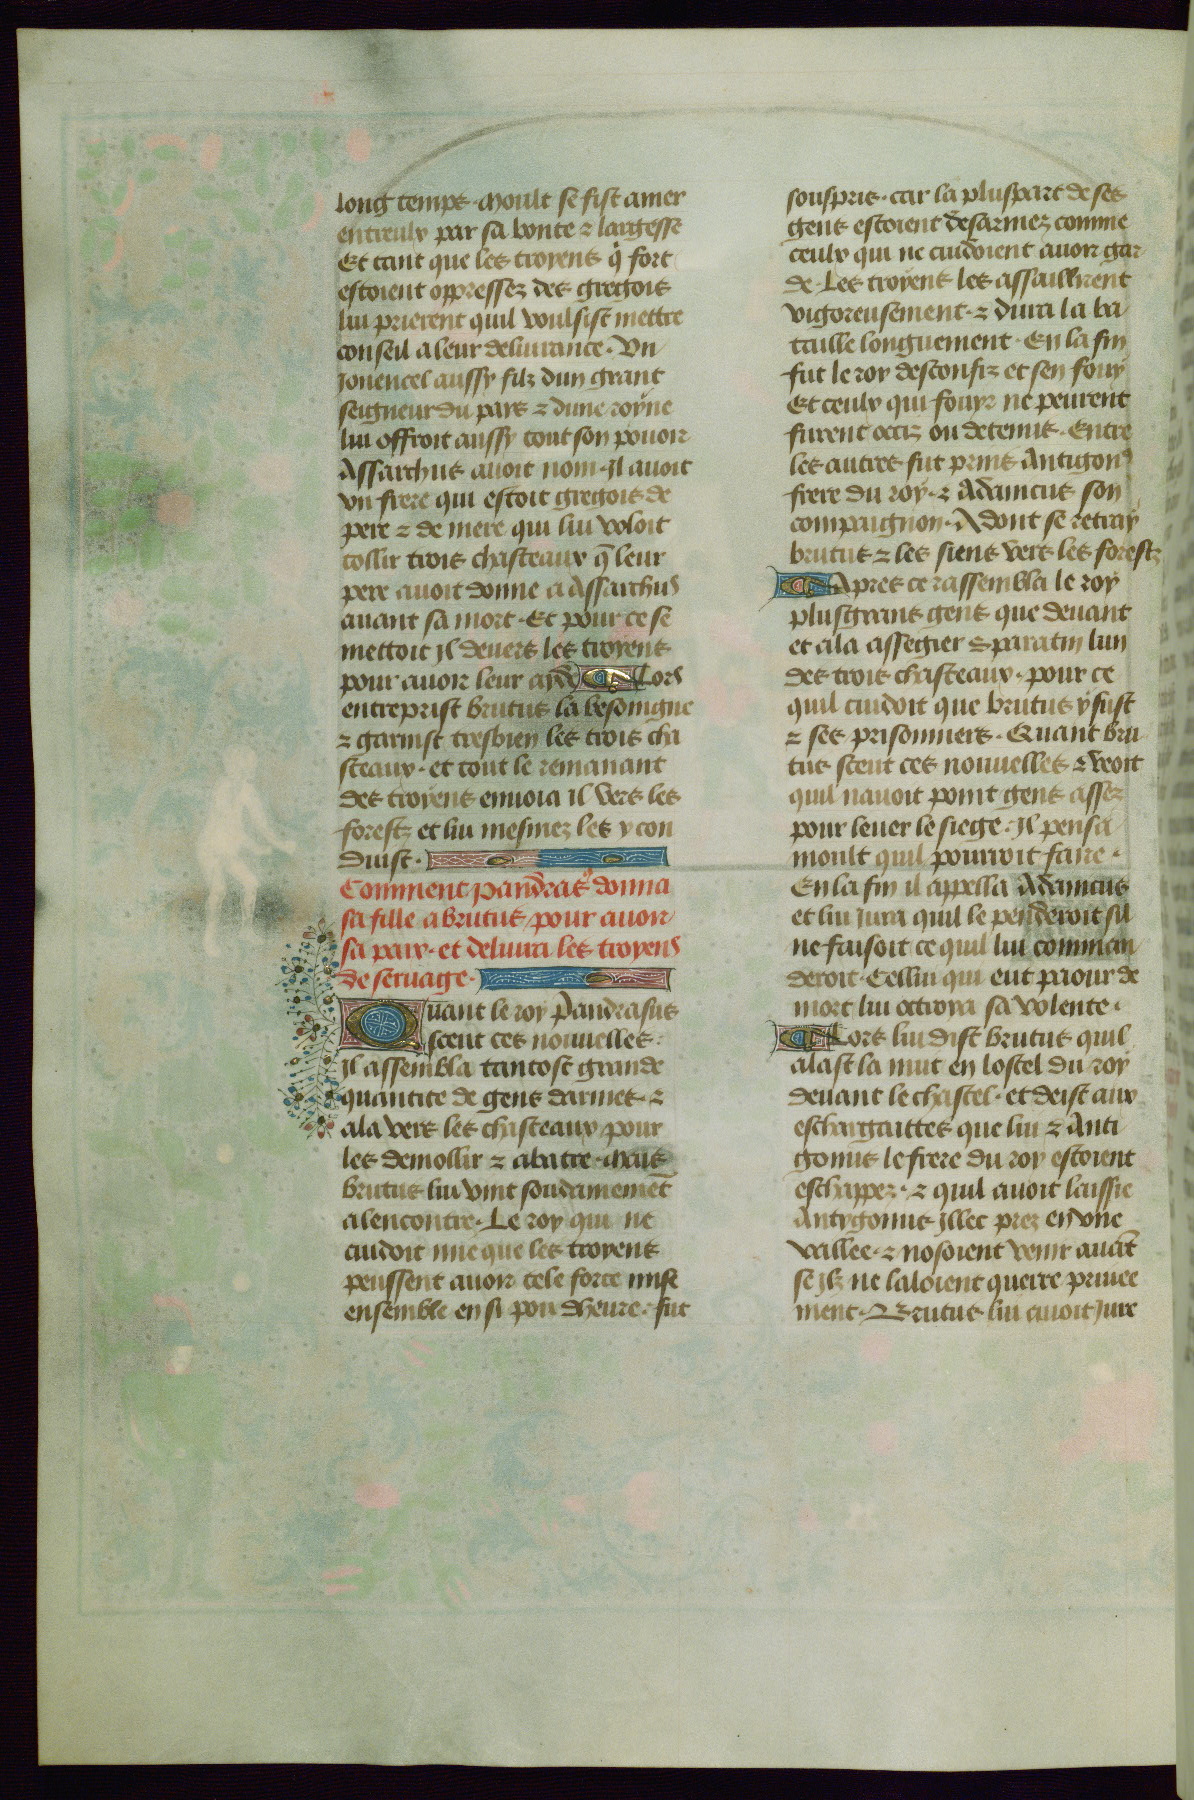 long temps · Moult se fist amer
entreulx par sa bonte ⁊ largesse
Et tant que les troyens q̇ fort
estoient oppressez des gregois
lui prierent quil voulsist mettre
conseil a leur deliurance · Vn
Jouencel aussy filz dun grant
seigneur du pays ⁊ dune royne
lui offroit aussy tout son pouoir
Assarchus auoit nom · Jl auoit
vn frere qui estoit gregois de
pere ⁊ de mere qui lui voloit
tollir trois chasteaux q̃ leur
pere auoit donne a Assarchus
auant sa mort · Et pour ce se
mettoit Jl deuers les troyens
pour auoir leur ayde Lors
entreprist brutus la besoingne
⁊ garnist tresbien les trois cha
steaux · et tout le remanant
des troyens enuoia il vers les
forestz et lui mesmez les y con
duist ·
Comment pandrasꝰ donna
sa fille a brutus pour auoir
sa paix · et deliura les troyens
de seruage ·
Quant le roy Pandrasus
sceut ces nouuelles ·
Jl assembla tantost grande
quantite de gens darmes · ⁊
ala vers les chasteaux pour
les demollir ⁊ abatre · Mais
brutus lui vint soudainemẽt
alencontre · Le roy qui ne
cuidoit mie que les troyens
peussent auoir tele force mise
ensemble en si pou dheure · fut
souspris · car la pluspart de ses
gens estoient desarmez comme
ceulx qui ne cuidoient auoir gar
de · Les troyens les assaillirent
vigoreusement · ⁊ dura la ba
taille longuement · En la fin
fut le roy desconfiz et sen fouy
Et ceulx qui fouyr ne peurent
furent occiz ou detenus · Entre
les autres fut prins Antigonꝰ
frere du roy · ⁊ Adamcus son
compaignon · Adont se retray
brutus ⁊ les siens vers les forestz
Apres ce rassembla le roy
plus grans gens que deuant
et ala assegier Sparatin lun
des trois chasteaux · pour ce
quil cuidoit que brutus y fust
⁊ ses prisonniers · Quant bru
tus sceut ces nouuelles ⁊ veoit
quil nauoit point gens assez
pour leuer le siege · Jl pensa
moult quil pourroit faire ·
En la fin il appella Adamcus
et lui Jura quil le penderoit sil
ne faisoit ce quil lui comman
deroit · Cellui qui eut paour de
mort lui octroya sa volente ·
Lors lui dist brutus quil
alast la nuit en lostel du roy
deuant le chastel · et deist aux
eschargaittes que lui ⁊ Anti
gonus le frere du roy estoient
eschappez · ⁊ quil auoit laissie
Antygonus Jllec prez en vne
vallee · ⁊ nosoient venir auãt
se Jlz ne laloient querre priuee
ment · Brutus lui auoit Jure